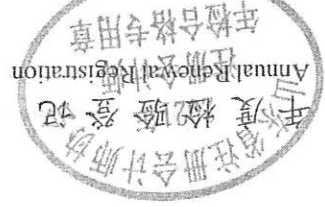 年度检验登记
Annual Renewal Registration
省注册会计师协
年检合格专用章